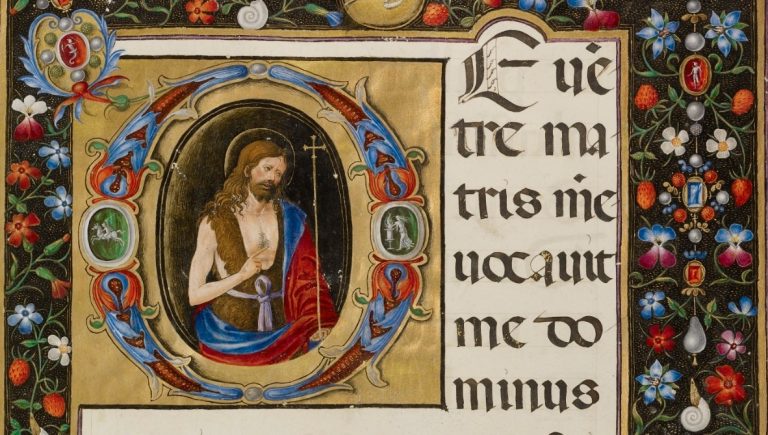 DE uē
tre ma
tris mē
uocauit
me do
minus